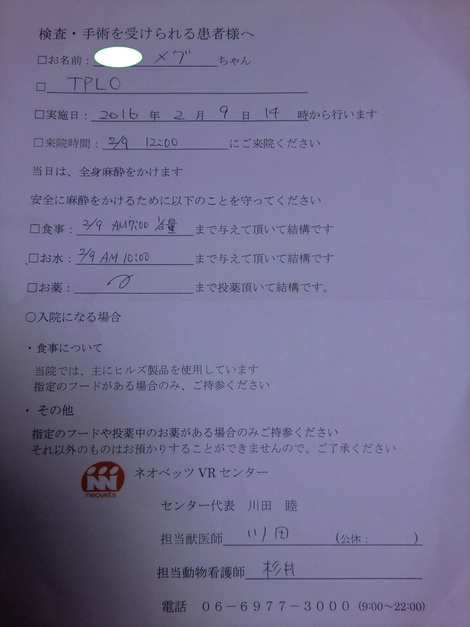 検査・手術を受けられる患者様へ
□お名前： メグ ちゃん
□ TPLO
□実施日：2016 年 2 月 9 日 14 時から行います
□来院時間：2/9 12:00 にご来院ください
当日は、全身麻酔をかけます
安全に麻酔をかけるために以下のことを守ってください
□食事：2/9 AM7:00 ½量 まで与えて頂いて結構です
□お水：2/9 AM 10:00 まで与えて頂いて結構です
□お薬： まで投薬頂いて結構です。
○入院になる場合
・食事について
当院では、主にヒルズ製品を使用しています
指定のフードがある場合のみ、ご持参ください
・その他
指定のフードや投薬中のお薬がある場合のみご持参ください
それ以外のものはお預かりすることができませんので、ご了承ください
neovets ネオベッツVRセンター
センター代表 川田 睦
担当獣医師 川田 (公休： )
担当動物看護師 杉井
電話 06－6977－3000 (9:00～22:00)